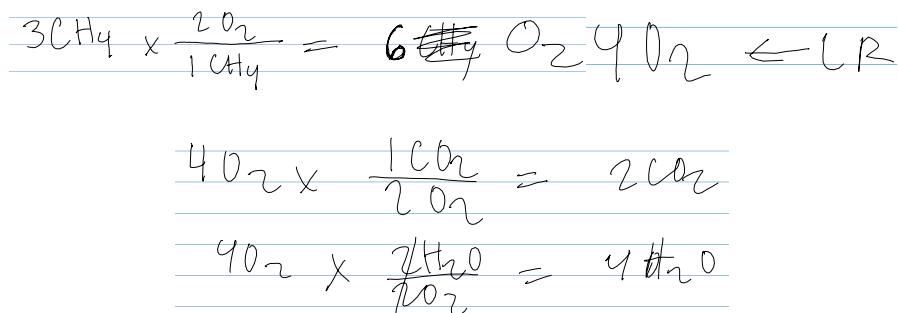 3CH4 x 2O2/1CH4 = 6 O2 4O2 ← LR
4O2 x 1CO2/2O2 = 2CO2
4O2 x 2H2O/2O2 = 4H2O